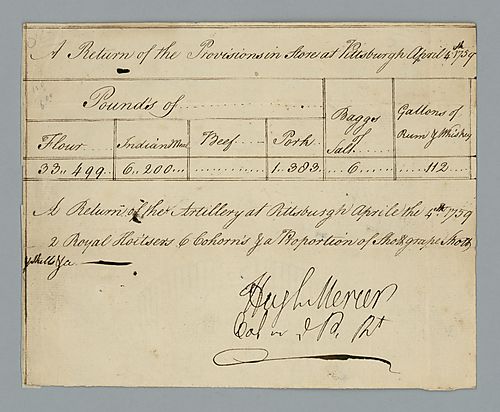 A Return of the Provisions in Store at Pittsburgh April 4th 1759
Pounds of
Baggs of Salt
Gallons of Rum & Whiskey
Flour Indian Meal Beef Pork
33,, 499 6,, 200 1,, 383 6 112
A Return of the Artillery at Pittsburgh Aprile the 4th 1759
2 Royal Hoitsers 6 Cohorns & a Proportion of Shott grape Shott
& Shells &a
Hugh Mercer
Col